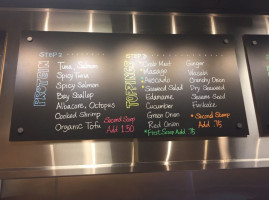 STEP 2
PROTEIN
Tuna, Salmon
Spicy Tuna
Spicy Salmon
Bay Scallop
Albacore, Octopus
Cooked Shrimp
Organic Tofu
Second Scoop
Add 1.50
TOPPINGS
Crab Meat
Masago
Avocado
Seaweed Salad
Edamame
Cucumber
Green Onion
Red Onion
First Scoop Add .75
Ginger
Wasabi
Crunchy Onion
Dry Seaweed
Sesame Seed
Furikake
Second Scoop
Add .75